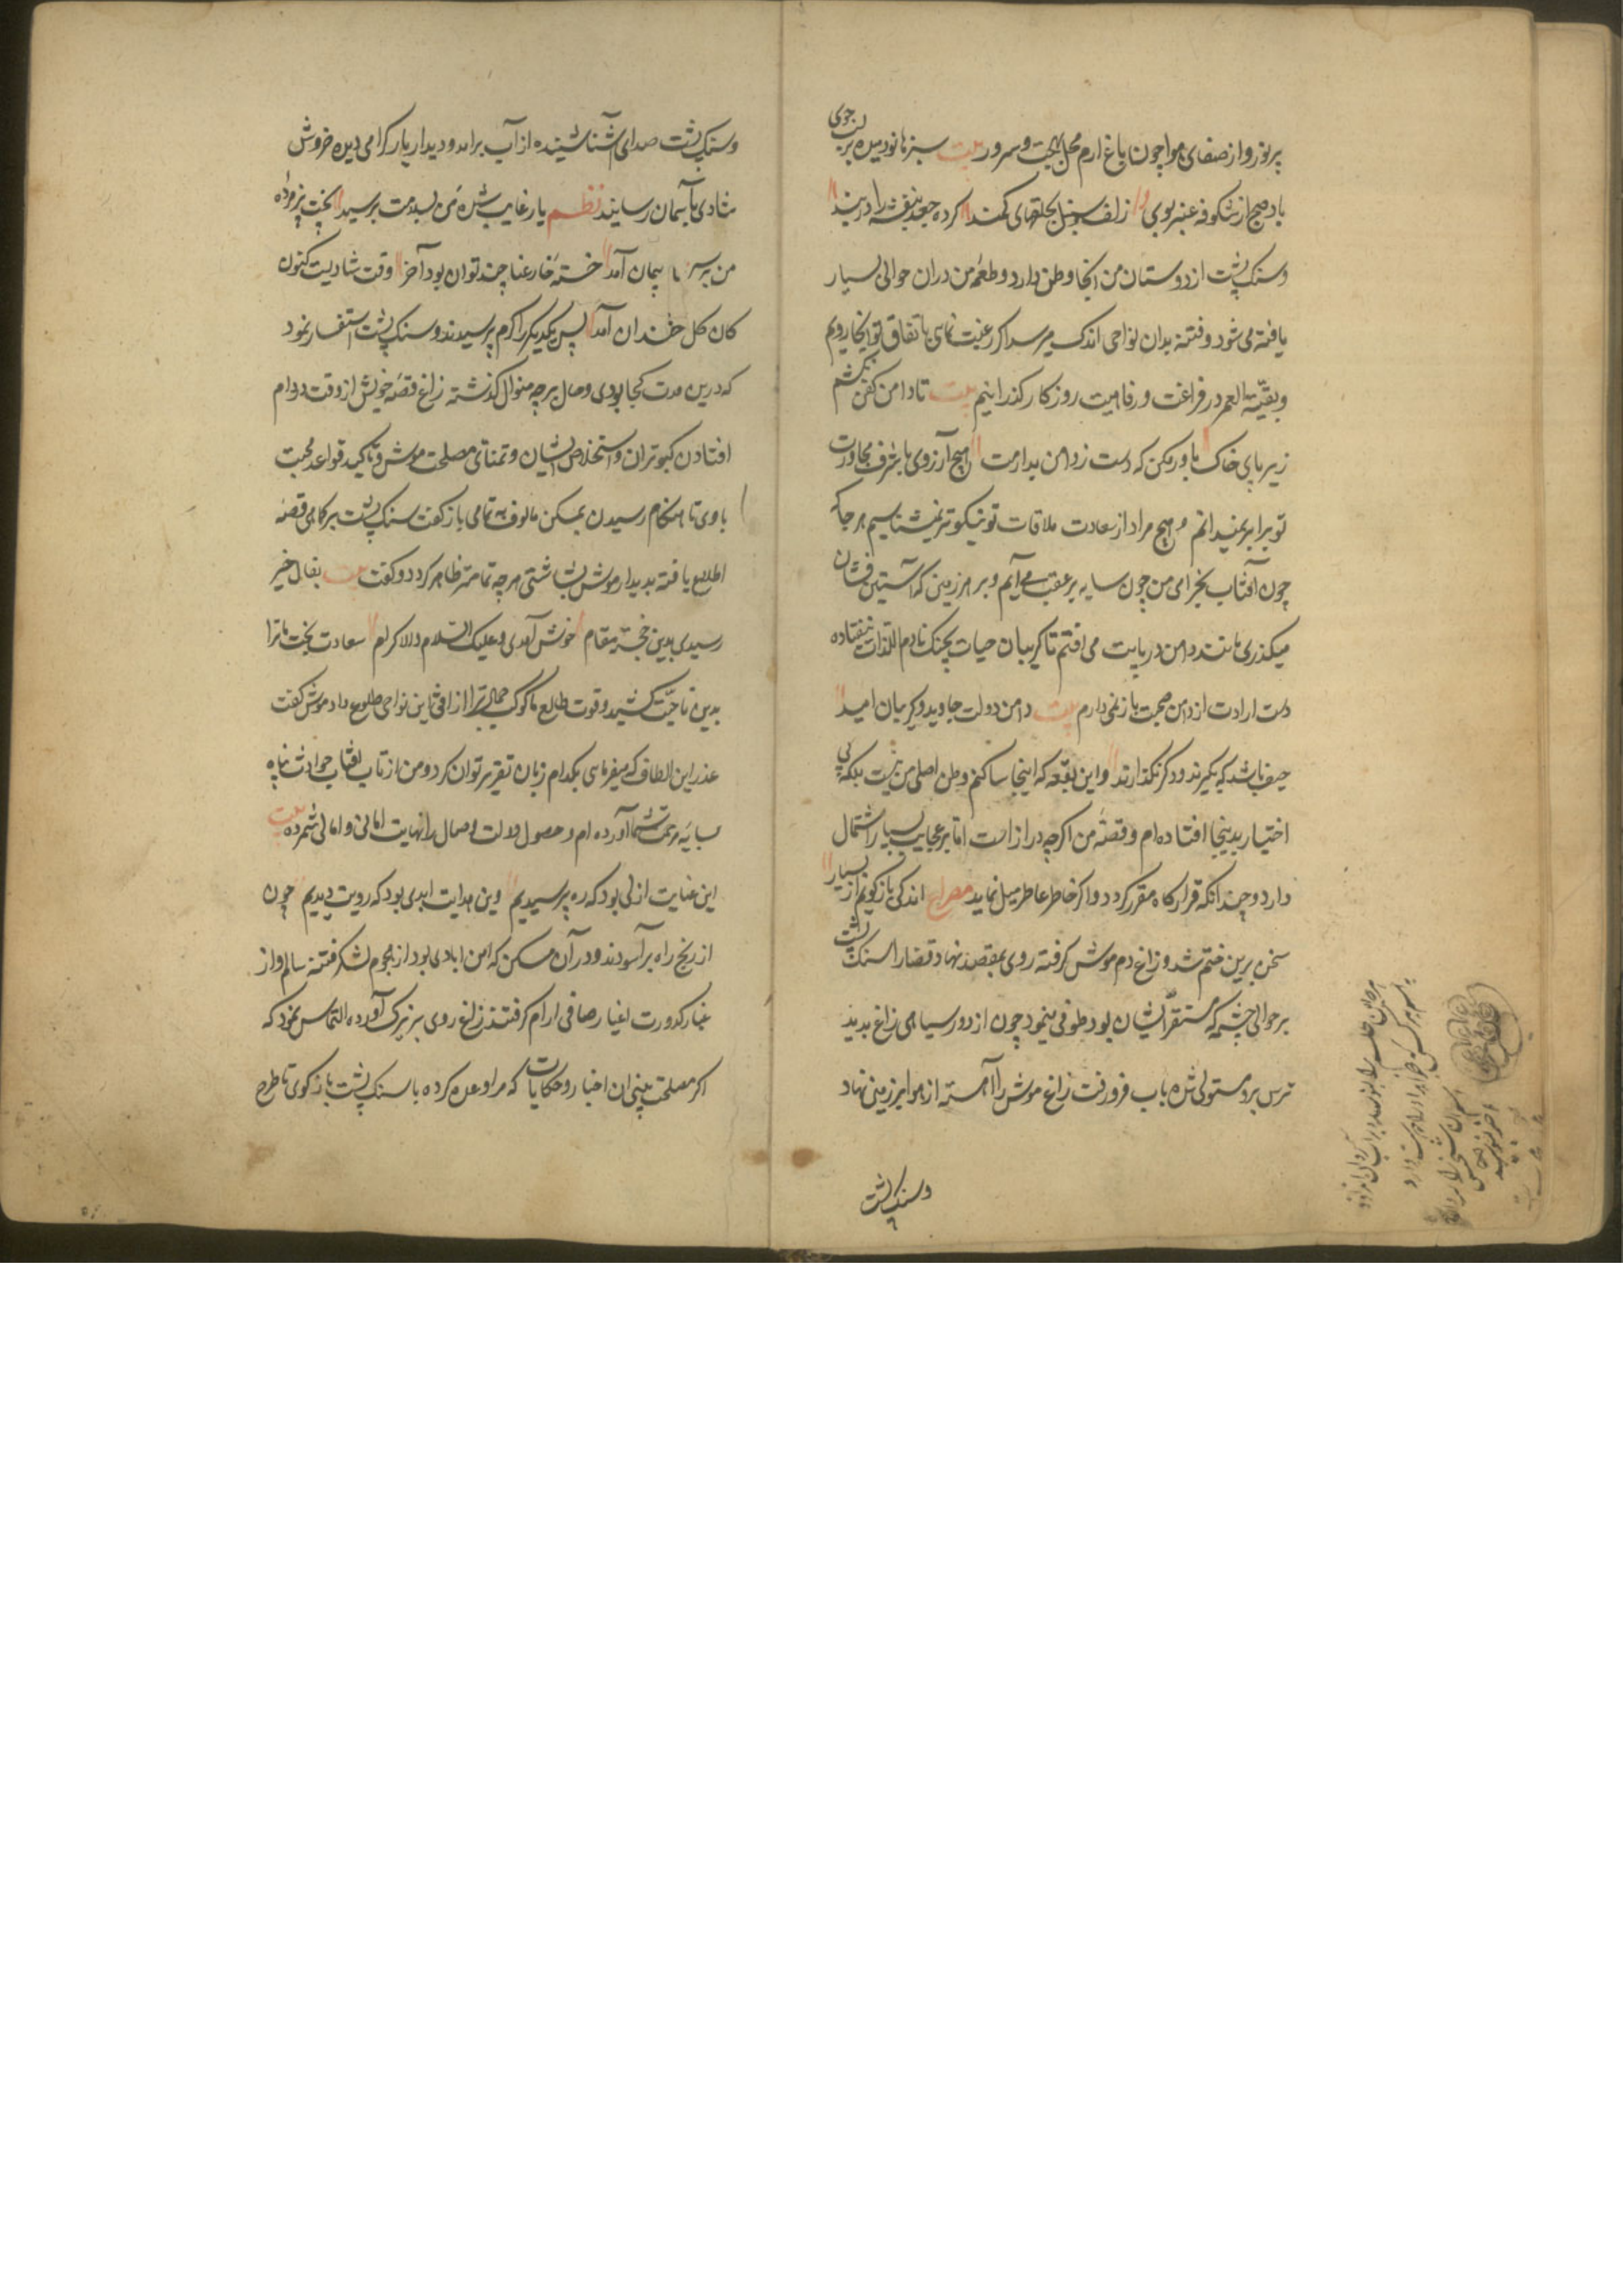 پرنور و از صفای هوا چون باغ ارم محل بهجت و سرور بیت سبزها نو دمیده بر لب جوی
باد صبح از شکوفه عنبر بوی زلف سنبل بحلقهای کمند کرده جعد بنفشه را در بند
و سنک پشت از دوستان من انجا وطن دارد و طعمه من دران حوالی بسیار
یافته می شود و فتنه بدان نواحی اندک میرسد اکر رغبت نمای باتفاق تو انجا رویم
و بقیّه العمر در فراغت و رفاهیت روزکار کذرانیم بیت تا دامن کفن نکشم
زیر پای خاک باور مکن که دست ز دامن بدارمت هیچ آرزوی با شرف مجاورت
تو برابر نمیدانم و هیچ مراد از سعادت ملاقات تو نیکوتر نمیشناسیم هر جا که
چون آفتاب بخرامی من چون سایه بر عقب می آیم و بر هر زمین که آستین فشان
میکذری مانند دامن در پایت می افتم تا کریبان حیات بچنک هادم اللذات نیفتاده
دست ارادت از دامن صحبت باز نمی دارم بیت دامن دولت جاوید و کریبان امید
حیف باشد که بکیرند و دکر نکذارند و این بقعه که اینجا ساکنم وطن اصلی من نیست بلکه بی
اختیار بدینجا افتاده ام و قصهٔ من اکرچه دراز است اما بر عجایب بسیار اشتمال
دارد و چندانکه قرارکاه مقرر کردد و اکر خاطر عاطر میل نماید مصراع اندکی باز کویم از بسیار
سخن برین ختم شد و زاغ دم موش کرفته روی بمقصد نهاد قضا را سنک پشت
بر حوالی چشمه که مستقر ایشان بود طوفی مینمود چون از دور سیاهی زاغ بدید
ترس برو مستولی شده باب فرو رفت زاغ موش را آهسته از هوا بر زمین نهاد
و سنک پشت
و سنک پشت صدای آشنا شنیده از آب برامد و دیدار یار کرامی دیده خروش
شادی بآسمان رسانید نظم یار غایب شده من بسلامت برسید بخت پژمرده
من بر سر پیمان آمد خسته خار عنا چند توان بود آخر وقت شادیست کنون
کان کل خندان آمد پس یکدیکر را کرم پرسیدند و سنک پشت استفسار نمود
که درین مدت کجا بودی و حال بر چه منوال کذشته زاغ قصه خویش از وقت در دام
افتادن کبوتران و استخلاص ایشان و تمنای مصلحت موش و تاکید قواعد محبت
با وی تا هنکام رسیدن بمسکن مالوف بتمامی باز کفت سنک پشت بر کماهی قصه
اطلاع یافته بدیدار موش بشاشتی هر چه تمامتر ظاهر کرد و کفت بیت بفال خیر
رسیدی بدین خجسته مقام خوش آمدی و علیک السلام والاکرام سعادت بخت ما ترا
بدین ناحیت کشید و قوت طالع ما کوکب جمال ترا از افق این نواحی طلوع داد موش کفت
عذر این الطاف که میفرمایی بکدام زبان تقریر توان کرد و من از تاب آفتاب حوادث پناه
بسایه مرحمت شما آورده ام و حصول دولت وصال را نهایت امانی و امالی شمرده بیت
این عنایت ازلی بود که ره پرسیدیم وین هدایت ابدی بود که رویت دیدیم چون
از رنج راه برآسودند و در آن مسکن که امن ابادی بود از هجوم لشکر فتنه سالم و از
غبار کدورت اغیار صافی ارام کرفتند زاغ روی بزیرک آورده التماس نمود که
اکر مصلحت بینی ان اخبار و حکایات که مرا وعده کرده با سنک پشت باز کوی تا طرح